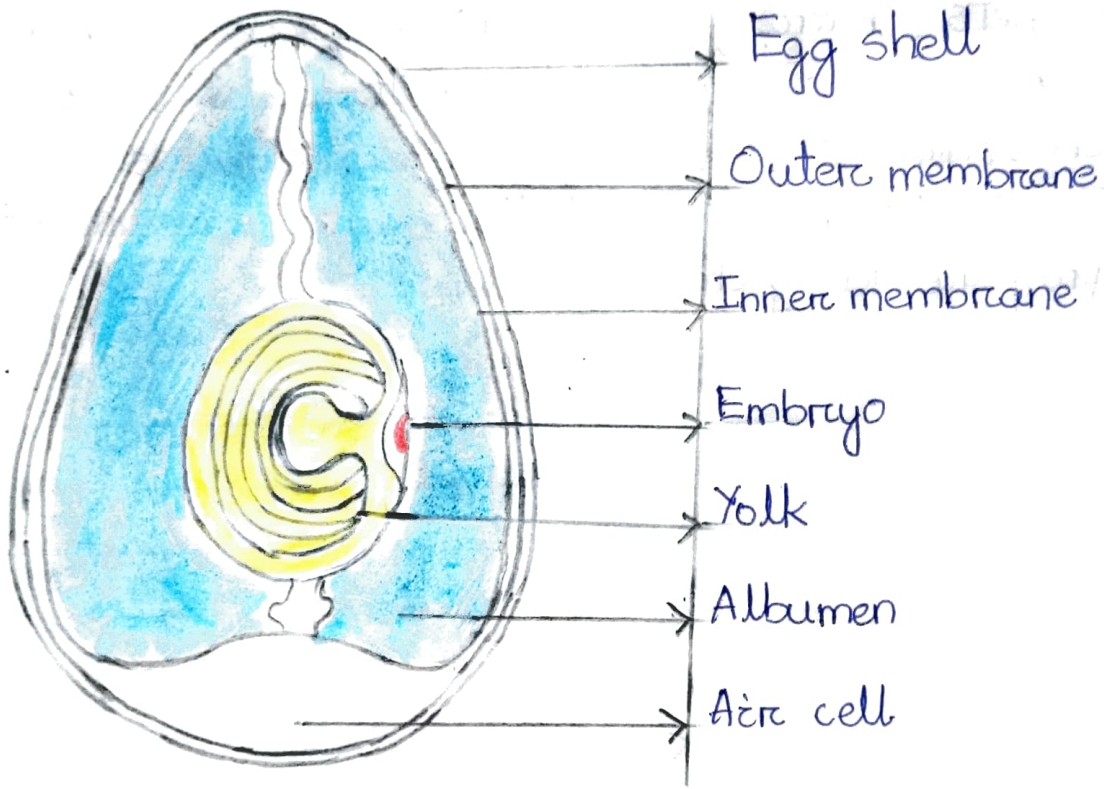 Egg shell
Outer membrane
Inner membrane
Embryo
Yolk
Albumen
Air cell